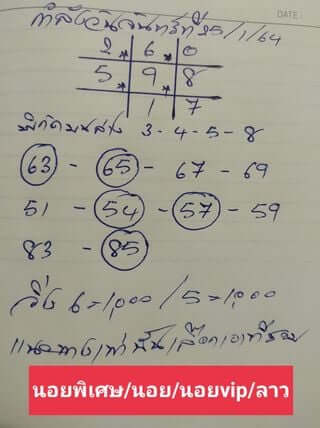 DATE
กำลังวันจันทร์ที่ 25/1/64
2 6 0
5 9 8
1 7
3-4-5-8
63 - 65 - 67 - 69
51 - 54 - 57 - 59
83 - 85
วิ่ง 6=1,000 / 5=1,000
แนวทางเท่านั้น เลือกเอาที่ชอบ
นอยพิเศษ/นอย/นอยvip/ลาว